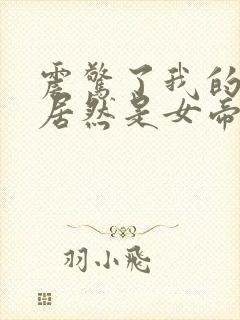 震惊了我的
居然是女帝
羽小飛